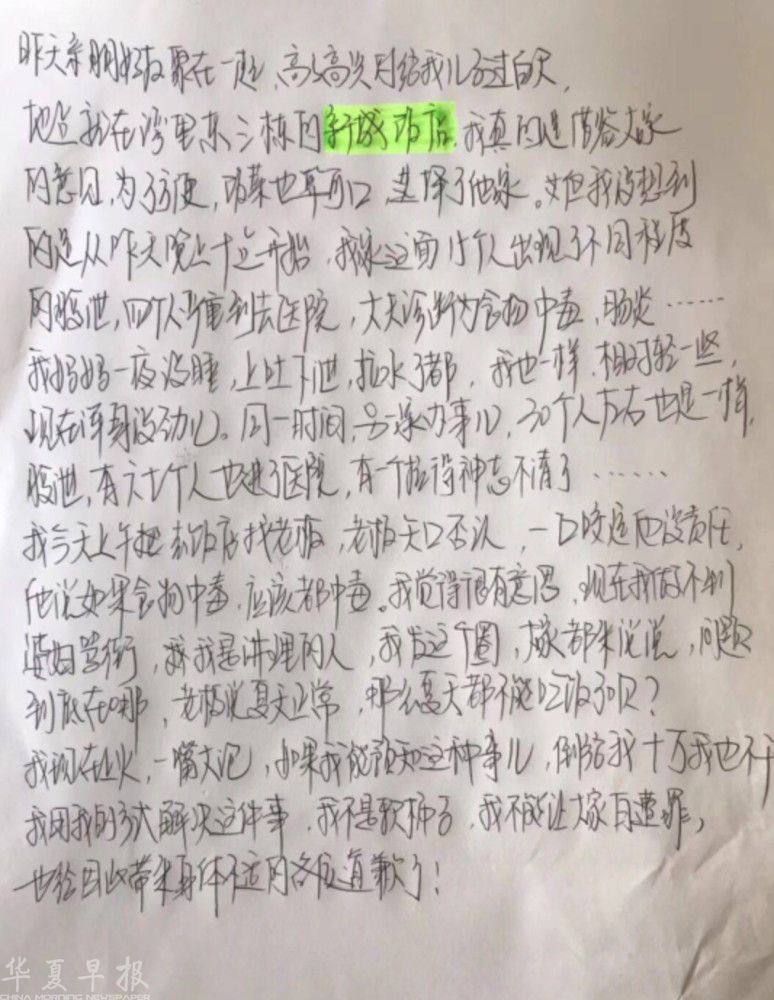 昨天亲朋好友聚在一起,高高兴兴网给我儿子过白天,
地点就在湾里东三栋的新城饭店,我真的是借答大家
的意见,为了方便,饭菜也算可口,选择了他家。但我没想到
的是从昨天晚上十点开始,我家这面15个人出现了不同程度
的腹泄,四个人严重到去医院,大夫诊断为食物中毒,肠炎……
我妈妈一夜没睡,上吐下泄,拉水了都,我也一样,相对轻一些,
现在浑身没劲儿。同一时间,另一家办事儿,30个人左右也是一样,
腹泄,有六七个人也进了医院,有一个拉得神志不清了……
我今天上午把去饭店找老板,老板矢口否认,一口咬定他没责任,
他说如果食物中毒,应该都中毒。我觉得很有意思,现在我做不到
泼妇骂街,我是讲理的人,我发这个圈,大家都来说说,问题
到底在哪,老板说夏天正常,那么夏天都不能吃饭了呗?
我现在上火,一嘴大泡,如果我能预知这种事儿,倒给我十万我也不干
我用我的方式解决这件事,我不是软柿子,我不能让大家白遭罪,
也给因此带来身体不适的各位道歉了!
华夏早报
CHINA MORNING NEWSPAPER